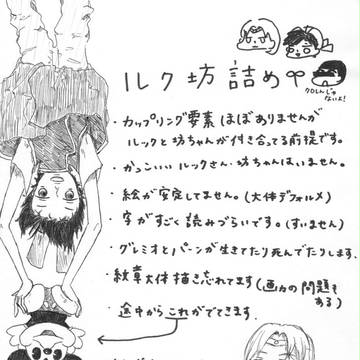 ルク坊詰め
クロしんじゃないよ!
・カップリング要素ほぼありませんが
ルックと坊ちゃんが付き合ってる前提です。
・かっこいいルックさん・坊ちゃんはいません。
・絵が安定してません。(大体デフォルメ)
・字がすごく読みづらいです。(すいません)
・グレミオとパーンが生きてたり死んでたりします。
・紋章大体描き忘れてます(画力の問題もある)
・途中からこれがでてきます。